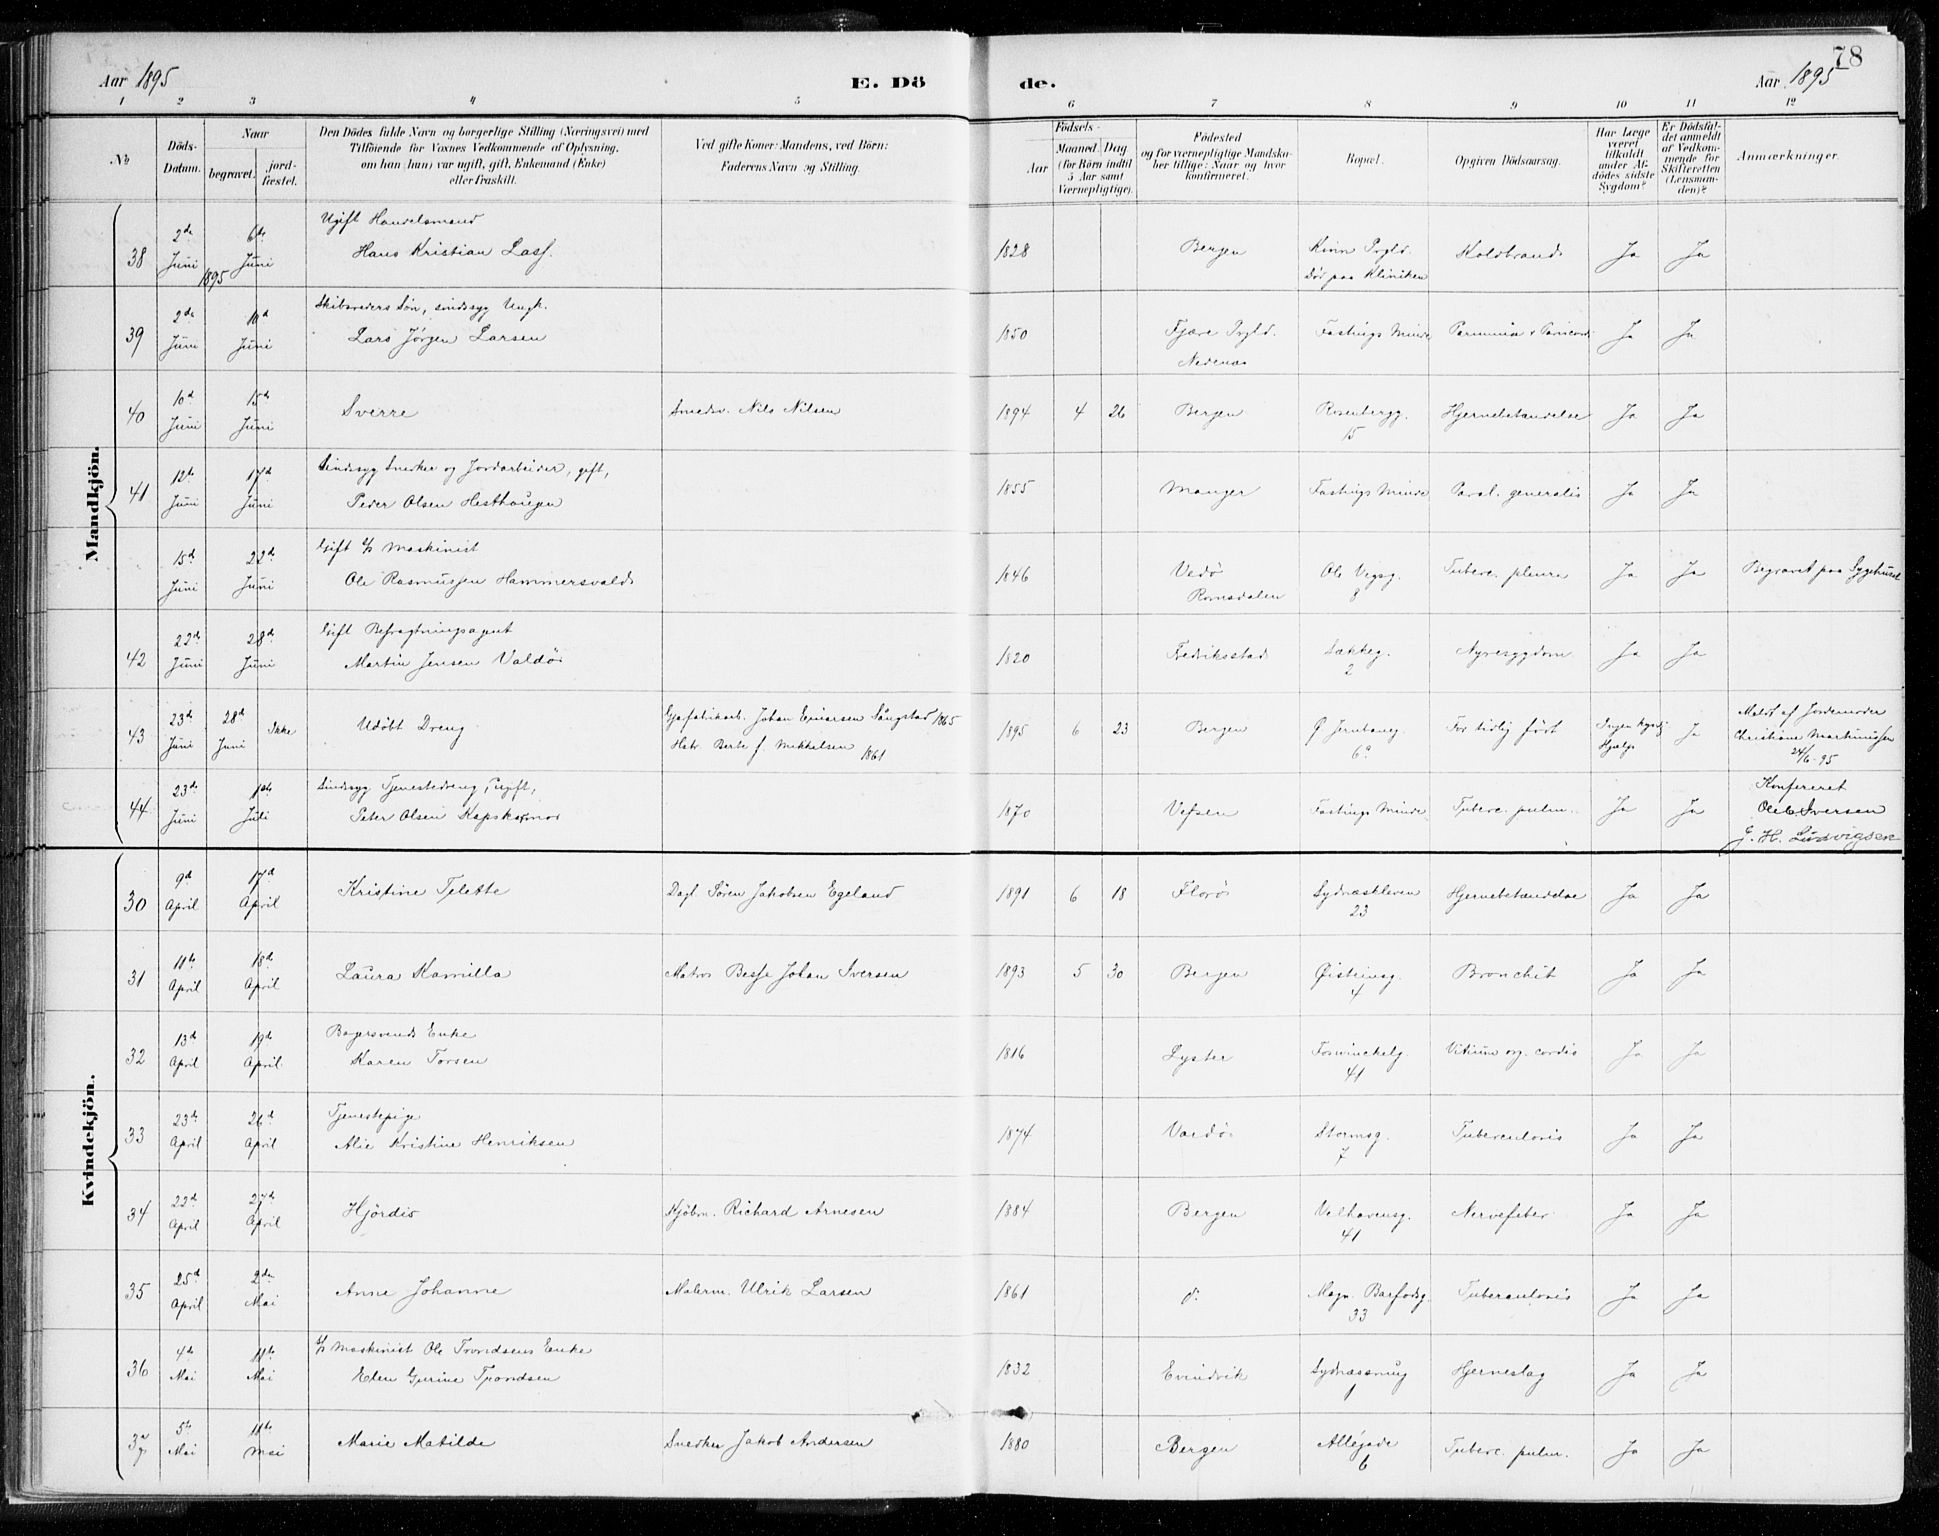 78
Aar 1895 E. Dö de. Aar 1895
1 2 3 4 5 6 7 8 9 10 11 12
No
Döds-Datum.
Naar
begravet.
jord-fæstet.
Den Dödes fulde Navn og borgerlige Stilling (Næringsvei) med
Tilföiende for Voxnes Vedkommende af Oplysning,
om han (hun) var ugift, gift, Enkemand (Enke)
eller fraskilt.
Ved gifte Koner: Mandens, ved Börn:
Faderens Navn og Stilling.
Födsels-
Aar
Maaned. Dag
(for Börn indtil
5 Aar samt
Værnepligtige).
Födested
og for værnepligtige Mandska-
ber tillige: Naar og hvor
konfirmeret.
Bopæl.
Opgiven Dödsaarsag.
Har Læge
været
tilkaldt
under Af-
dödes sidste
Sygdom?
Er Dödsfal-
det anmeldt
af Vedkom-
mende for
Skifteretten
(Lensman-
den)?
Anmærkninger.
Mandkjön.
38 2de Juni 1895 6te Juni Ugift Handelsmand
Hans Kristian Lass. 1828 Bergen Kinn Prgld. Död paa Kliniken Koldbrand Ja Ja
39 2de Juni 10d Juni Skibsreders Sön, sindssyg Ungk.
Lars Jörgen Larsen 1850 Fjære Prgld. Nedenæs Fastings Minde Ja Ja
40 10d Juni 15d Juni Sverre Smedsv. Nils Nilsen 1894 4 26 Bergen Rosenbergg. 15 Hjernebetændelse Ja Ja
41 12te Juni 17d Juni Sindssyg Snedker og Jordarbeider, gift,
Peder Olsen Hesthaugen 1855 Manger Fastings Minde Paral. generalis Ja Ja
15d Juni 22de Juni Gift Maskinist
Ole Rasmussen Hammersvald 1846 Vedö Romsdalen Ole Vegsg. 8 Tuberc. pleura Ja Ja Begravet paa Sygehuset
42 22de Juni 28de Juni Gift Befragtningsagent
Martin Jensen Valdö 1820 Fredriksstad Sækkeg. 2 Nyresygdom Ja Ja
43 23de Juni 28d Juni Ikke Udöbt Dreng Johan Einarsen 1865
Hstr. Berte f. Mikkelsen 1861 1895 6 23 Bergen Ø. Jernbaneg. 6a For tidlig födt Ingen Hjælp Ja Meldt af Jordemoder
Christiane Martinussen
24/6-95
44 23de Juni 1ste Juli Sindssyg Tjenestedreng, ugift,
Peter Olsen Kapskarmo 1870 Vefsen Fastings Minde Tuberc. pulm. Ja Ja Konfereret
Ole C. Iversen
J. H. Ludvigsen
Kvindekjön.
30 9d April 17d April Kristine Telette Dagl. Sören Jakobsen Egeland 1891 6 18 Florö Sydnæskleven 23 Hjernebetændelse Ja Ja
31 11te April 18d April Laura Kamilla Matros Johan Iversen 1893 5 30 Bergen Øisteinsg. 4 Bronchit Ja Ja
32 13d April 19d April Bagersvends Enke
Karen Torsen 1816 Lyster 41 Vitium org. cordis Ja Ja
33 23de April 26d April Tjenestepige
Alie Kristine Henriksen 1874 Vardö Stormsg. 7 Tuberculosis Ja Ja
34 22d April 27d April Hjördis Kjöbm. Richard Arnesen 1884 Bergen Velhavensg. 41 Nervefeber Ja Ja
35 25d April 2den Mai Anne Johanne Malerm. Ulrik Larsen 1861 do Magn. Barfodsg. 33 Tuberculosis Ja Ja
36 4de Mai 11te Mai Maskinist Ole Trondsens Enke
Elen Gurine Trondsen 1832 Evindvik Sydnæssmug 1 Hjerneslag Ja Ja
37 5te Mai 11te Mai Marie Matilde Snedker Jakob Andersen 1880 Bergen Allégade 6 Tuberc. pulm. Ja Ja